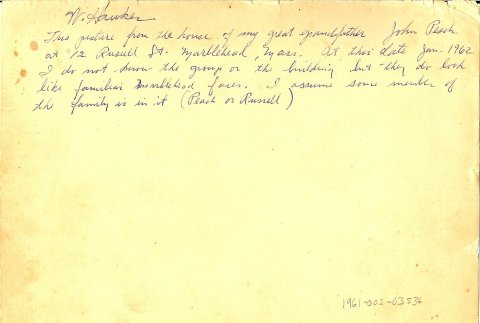 W. Hawkes
This picture from the house of my great grandfather John Peach
at 12 Russell St. Marblehead, Mass. At this date Jan. 1962
I do not know the group or the building but they do look
like familiar Marblehead faces. I assume some member of
the family is in it (Peach or Russell)
1961-002-03536